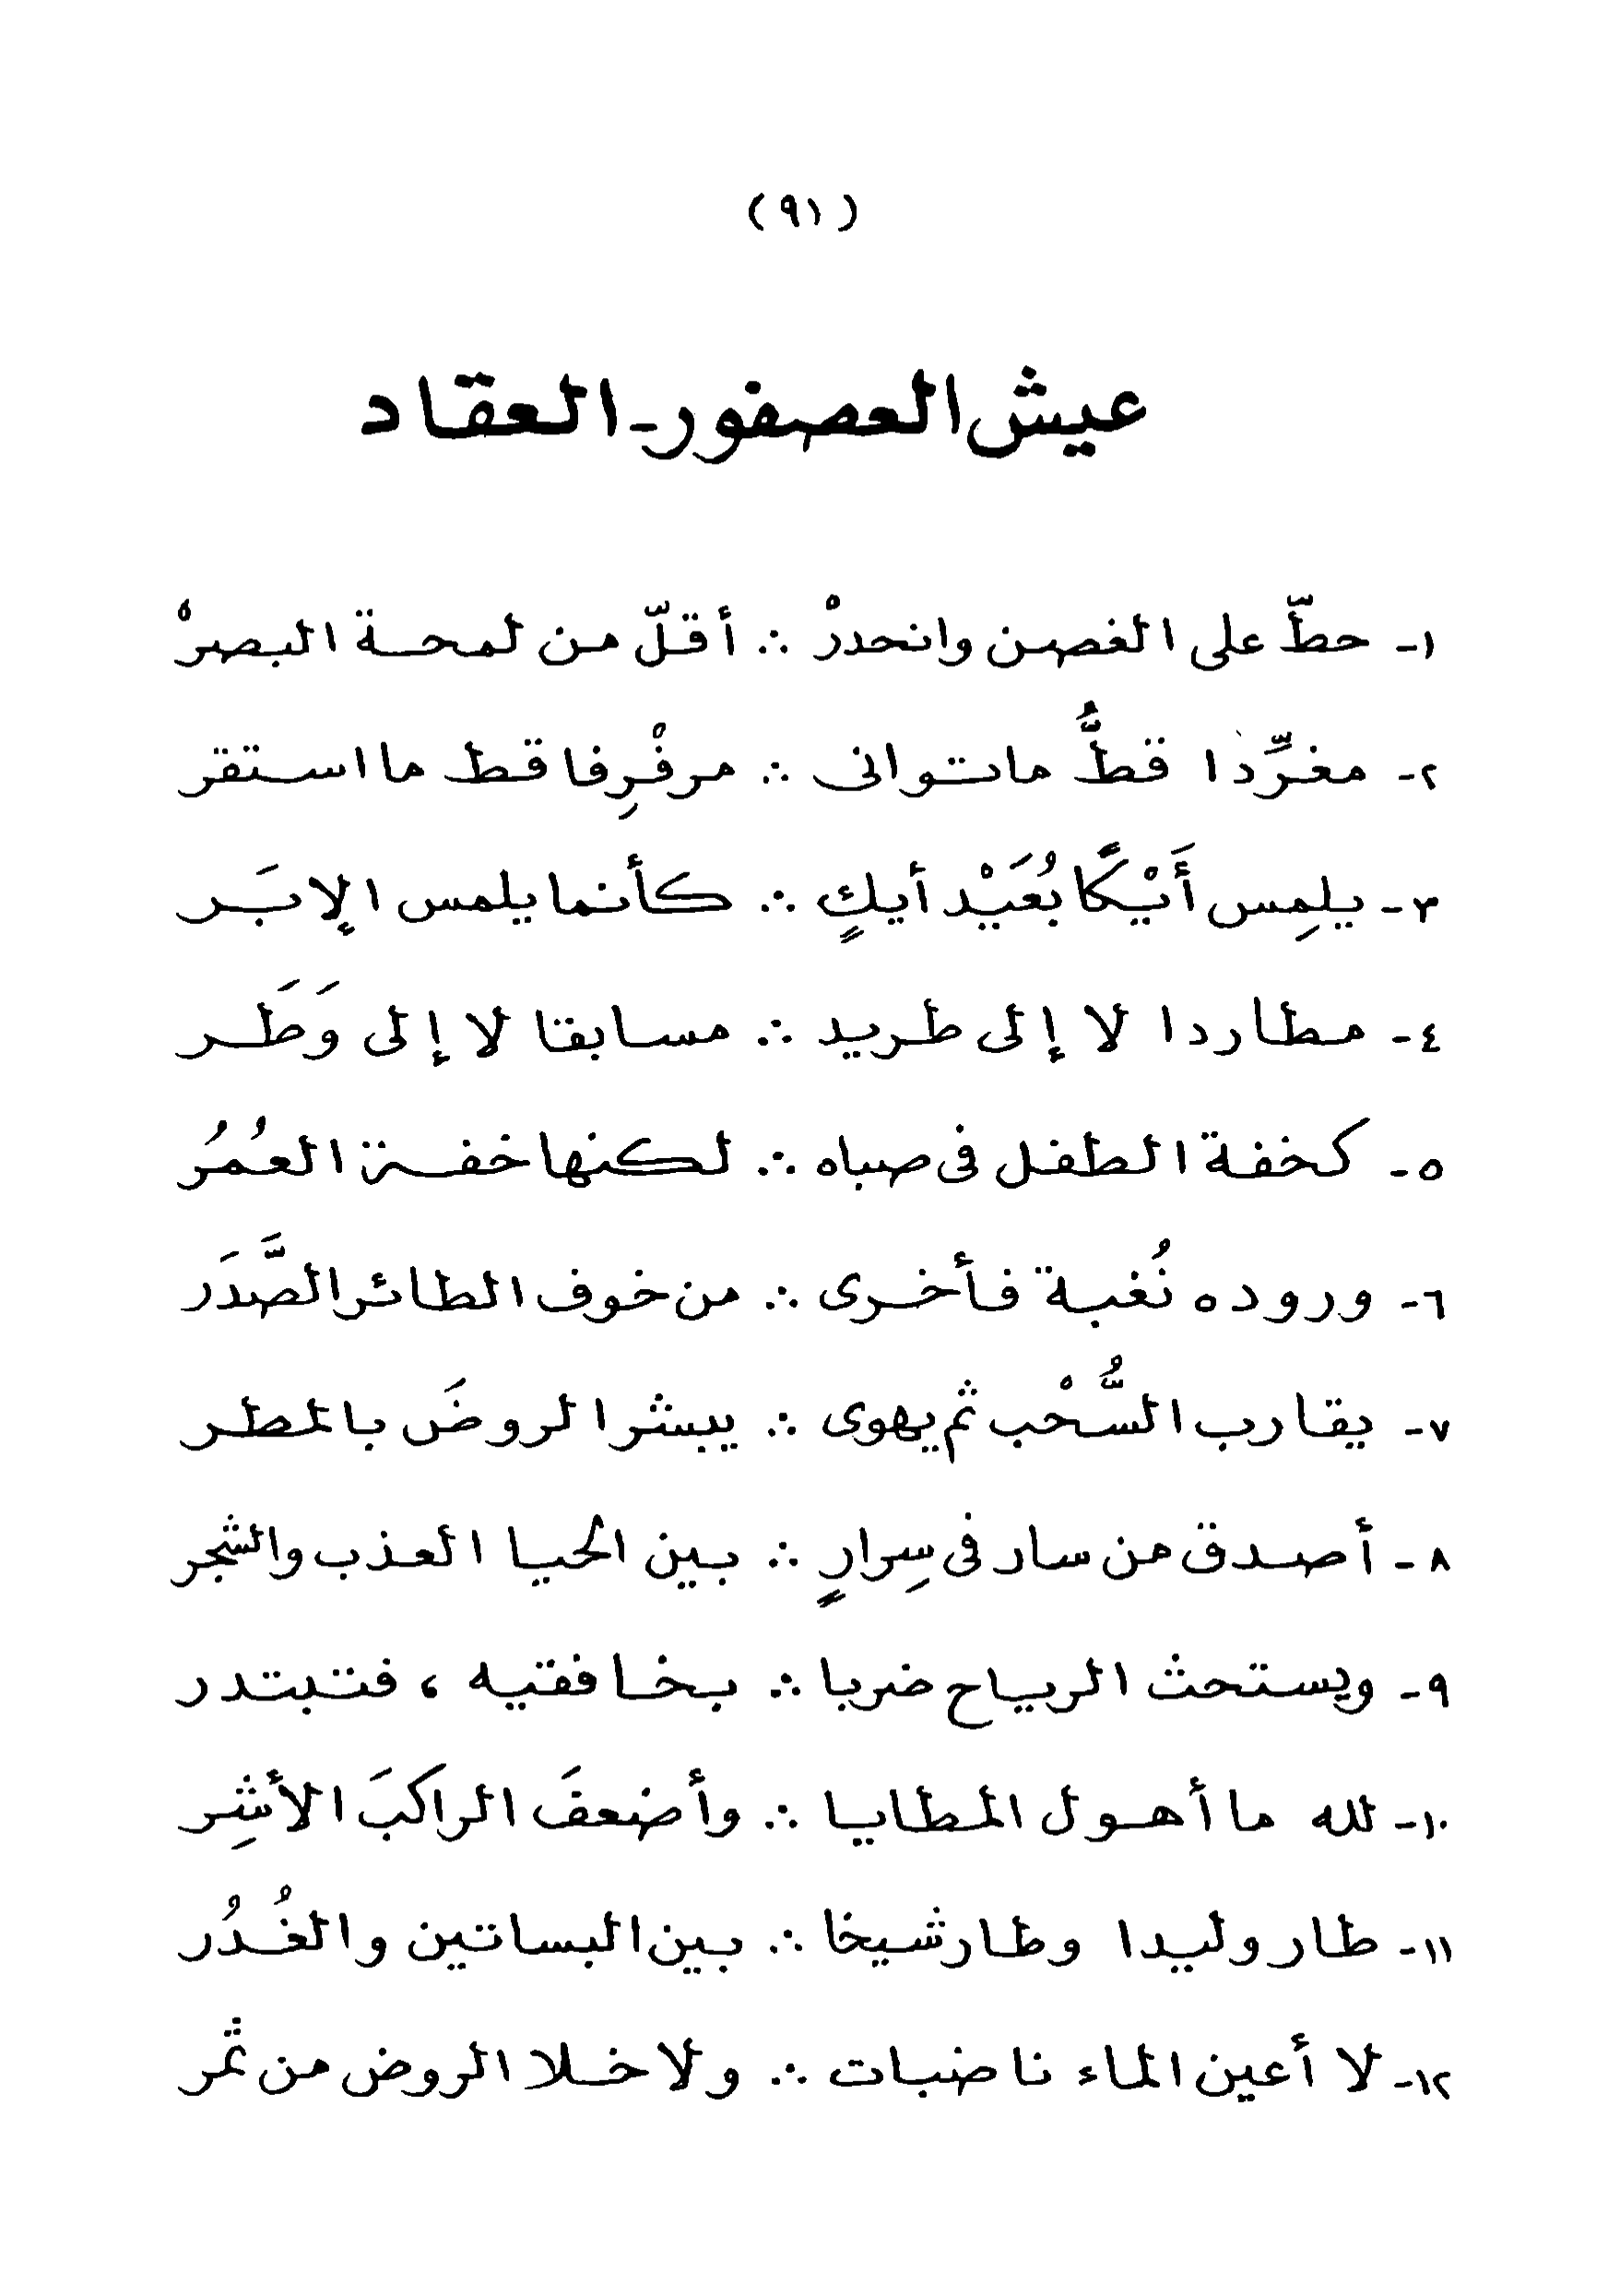 (٩١)
عيش العصفور - العقاد
١- حطّ على الغصن وانحدرْ ∴ أقلّ من لمحة البصرْ
٢- مغرِّدا قطُّ ما توانى ∴ مرفْرِفا قط ما استقر
٣- يلمِس أَيْكًا بُعَيْد أيكٍ ∴ كأنما يلمس الإبَر
٤- مطاردا لا إلى طريد ∴ مسابقا لا إلى وَطَر
٥- كخفة الطفل فى صباه ∴ لكنها خفة العُمُر
٦- وروده نُغبة فأخرى ∴ من خوف الطائر الصَّدَر
٧- يقارب السُّحْب ثم يهوى ∴ يبشر الروضَ بالمطر
٨- أصدق من سار فى سِرارٍ ∴ بين الحيا العذب والشجر
٩- ويستحث الرياح ضربا ∴ بخافقيه ، فتبتدر
١٠- لله ما أهول المطايا ∴ وأضعفَ الراكبَ الأشِر
١١- طار وليدا وطار شيخا ∴ بين البساتين والغُدُر
١٢- لا أعين الماء ناضبات ∴ ولا خلا الروض من ثمر